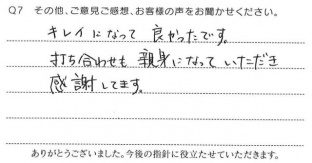 Q7 その他、ご意見ご感想、お客様の声をお聞かせください。
キレイになって 良かったです。
打ち合わせも 親身になって いただき
感謝してます。
ありがとうございました。今後の指針に役立たせていただきます。